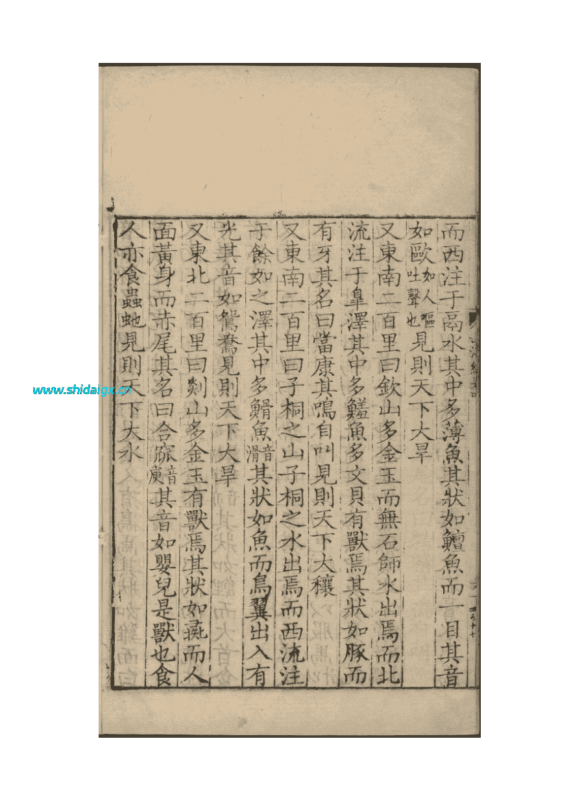 而西注于鬲水其中多薄魚其狀如鱣魚而一目其音
如歐如人嘔吐聲也見則天下大旱
又東南二百里曰欽山多金玉而無石師水出焉而北
流注于臯澤其中多鱃魚多文貝有獸焉其狀如豚而
有牙其名曰當康其鳴自叫見則天下大穰
又東南二百里曰子桐之山子桐之水出焉而西流注
于餘如之澤其中多䱻魚音滑其狀如魚而鳥翼出入有
光其音如鴛鴦見則天下大旱
又東北二百里曰剡山多金玉有獸焉其狀如彘而人
面黃身而赤尾其名曰合窳音庾其音如嬰兒是獸也食
人亦食蟲虵見則天下大水
www.shidaigx.cn